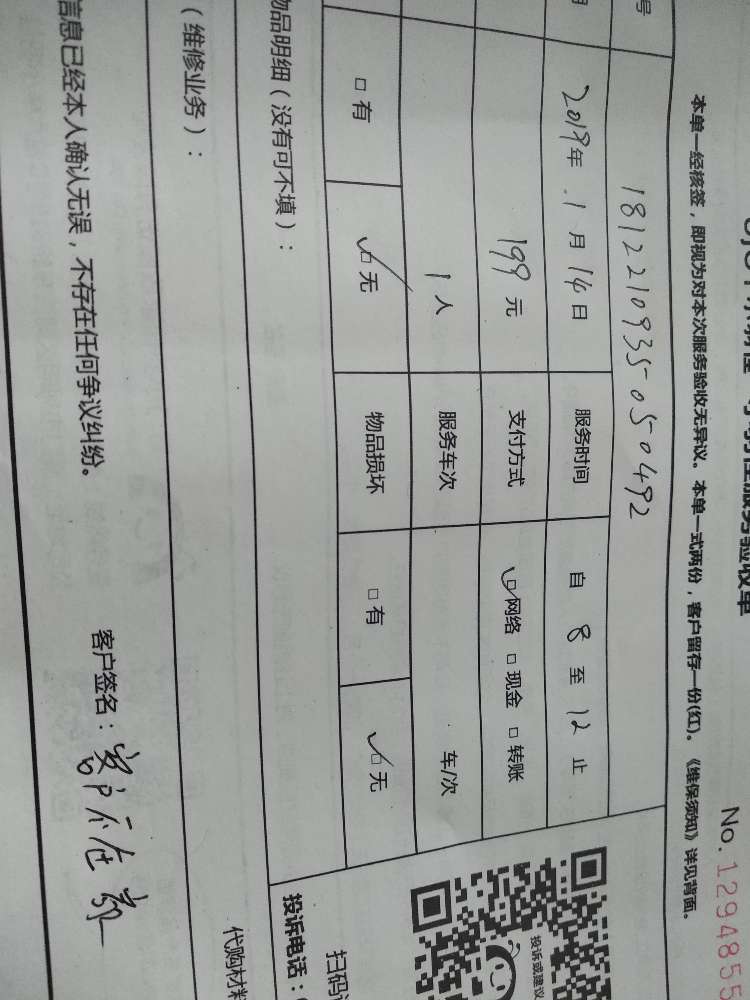 服务验收单
No.1294855
本单一经核签，即视为对本次服务验收无异议。本单一式两份，客户留存一份(红)。《维保须知》详见背面。
号 181221093505050492
2019年.1月14日 服务时间 自 8 至 12 止
199元 支付方式 ☑网络 □现金 □转账
1人 服务车次 车/次
□有 ☑无 物品损坏 □有 ☑无
物品明细（没有可不填）：
（维修业务）：
投诉或建议
扫码
投诉电话：
代购材料
信息已经本人确认无误，不存在任何争议纠纷。
客户签名：客户不在家